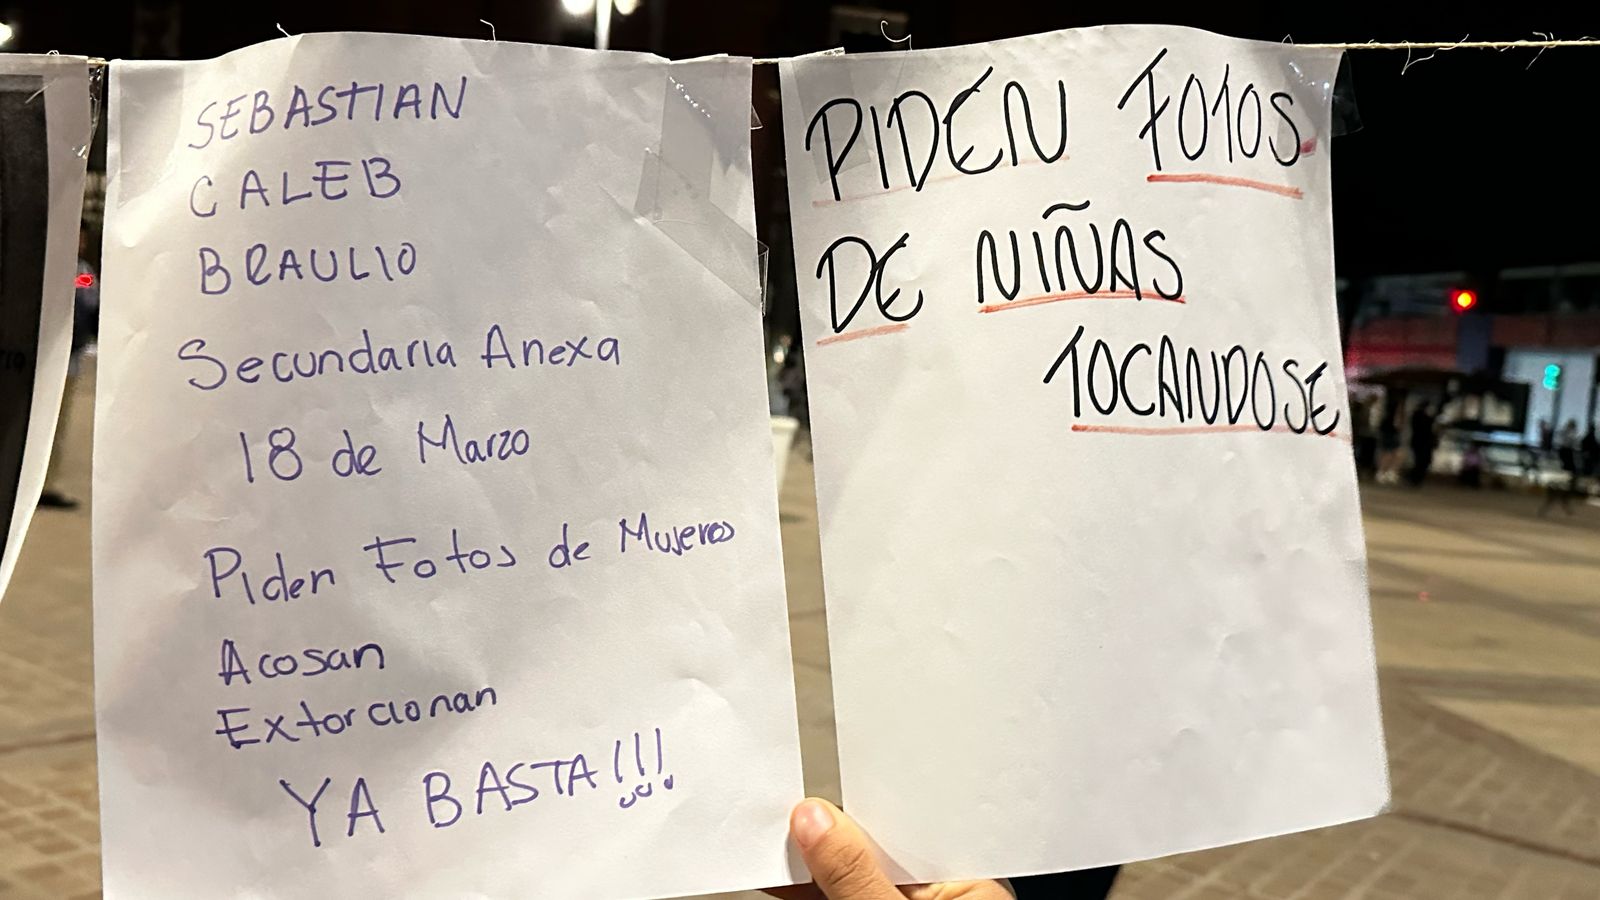 SEBASTIAN
CALEB
BRAULIO
Secundaria Anexa
18 de Marzo
Piden Fotos de Mujeres
Acosan
Extorcionan
YA BASTA!!!
PIDEN FOTOS
DE NIÑAS
TOCANDOSE